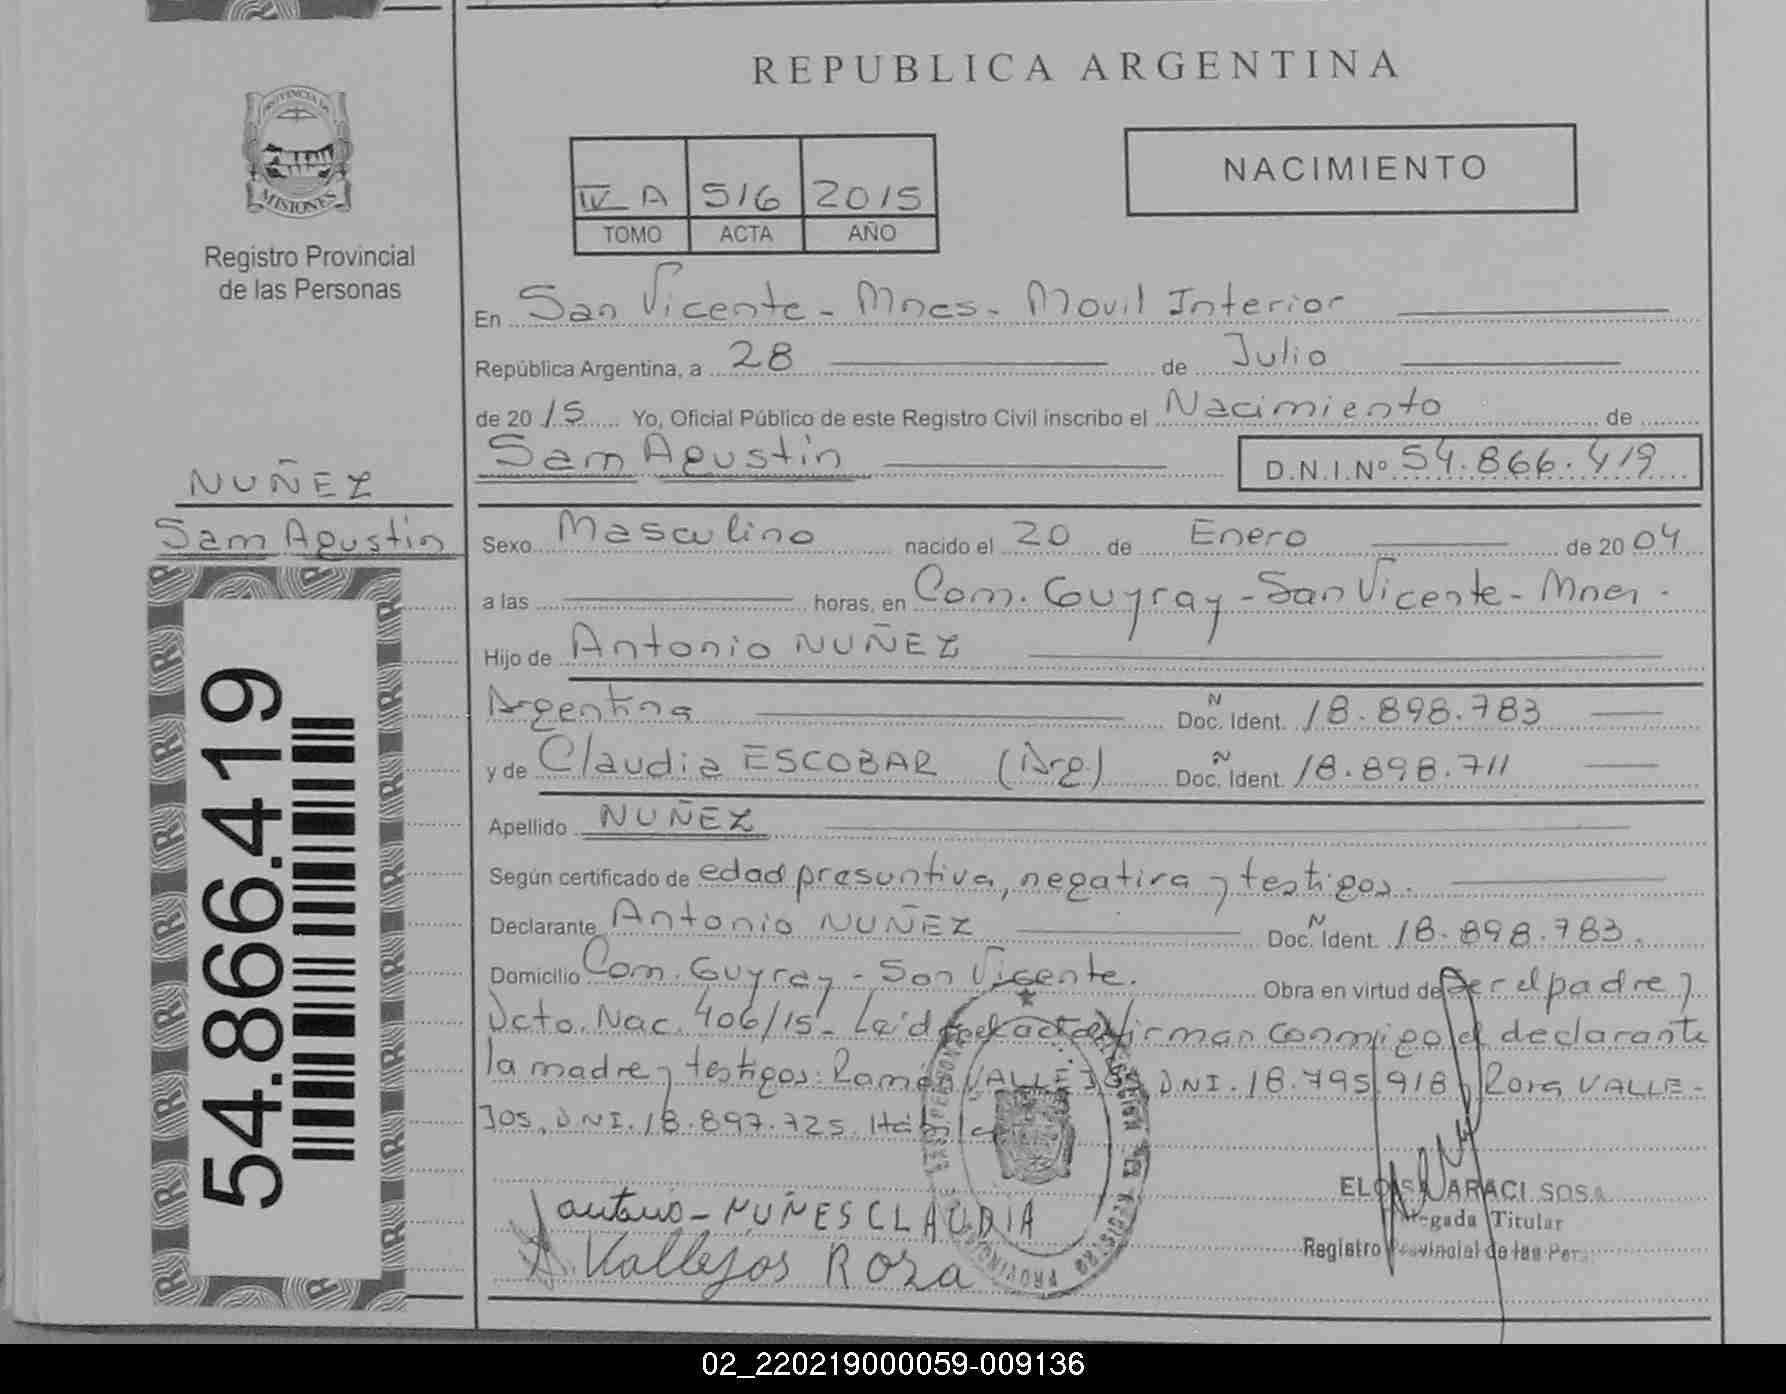 REPUBLICA ARGENTINA
NACIMIENTO
IV A 516 2015
TOMO ACTA AÑO
PROVINCIA DE
MISIONES
Registro Provincial
de las Personas
NUÑEZ
Sam Agustin
54.866.419
En San Vicente - Mnes - Movil Interior
República Argentina, a 28 de Julio
de 2015 Yo, Oficial Público de este Registro Civil inscribo el Nacimiento de
Sam Agustin D.N.I.Nº 54.866.419
Sexo Masculino nacido el 20 de Enero de 2004
a las horas, en Com. Guyray - San Vicente - Mnes.
Hijo de Antonio NUÑEZ
Argentina Ñ Doc. Ident. 18.898.783
y de Claudia ESCOBAR (Arg) Ñ Doc. Ident. 18.898.711
Apellido NUÑEZ
Según certificado de edad presuntiva, negativa y testigos.
Declarante Antonio NUÑEZ Ñ Doc. Ident. 18.898.783.
Domicilio Com. Guyray - San Vicente. Obra en virtud de ser el padre y
Dcto. Nac. 406/15 - Leida el acta firman conmigo el declarante
la madre y testigos: Ramón VALLEJOS DNI. 18.795.918 y Rosa VALLE-
JOS, DNI. 18.897.725. Hábiles
antonio - NUÑES CLAUDIA
Vallejos Roza
ELOISA ARACI SOSA
Delegada Titular
Registro Provincial de las Per
02_220219000059-009136